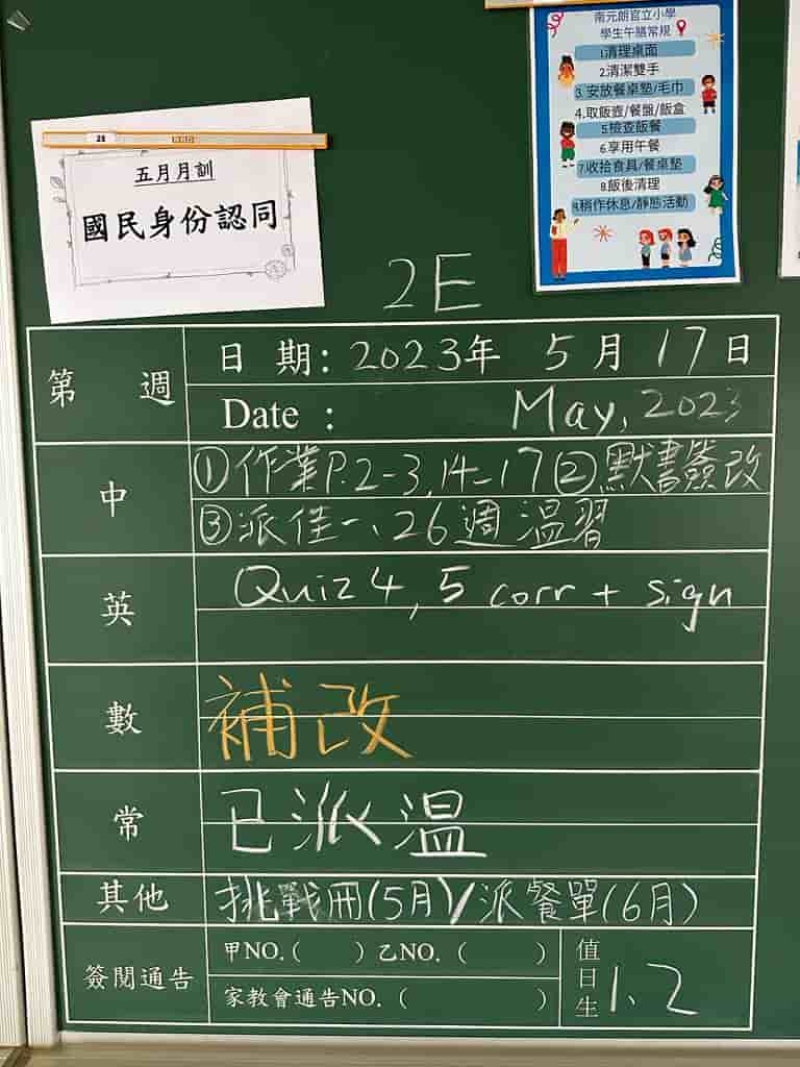 南元朗官立小學
學生午膳常規
1.清理桌面
2.清潔雙手
3.安放餐桌墊/毛巾
4.取飯壺/餐盤/飯盒
5.檢查飯餐
6.享用午餐
7.收拾食具/餐桌墊
8.飯後清理
9.稍作休息/靜態活動
五月月訓
國民身份認同
2E
第 週
日 期: 2023年 5月17日
Date : May, 2023
中
①作業P.2-3,14-17②默書簽改
③派佳一、26週溫習
英
Quiz 4, 5 corr + sign
數
補改
常
已派溫
其他
挑戰冊(5月)/派餐單(6月)
簽閱通告
甲NO.( )乙NO.( )
家教會通告NO.( )
值日生
1、2